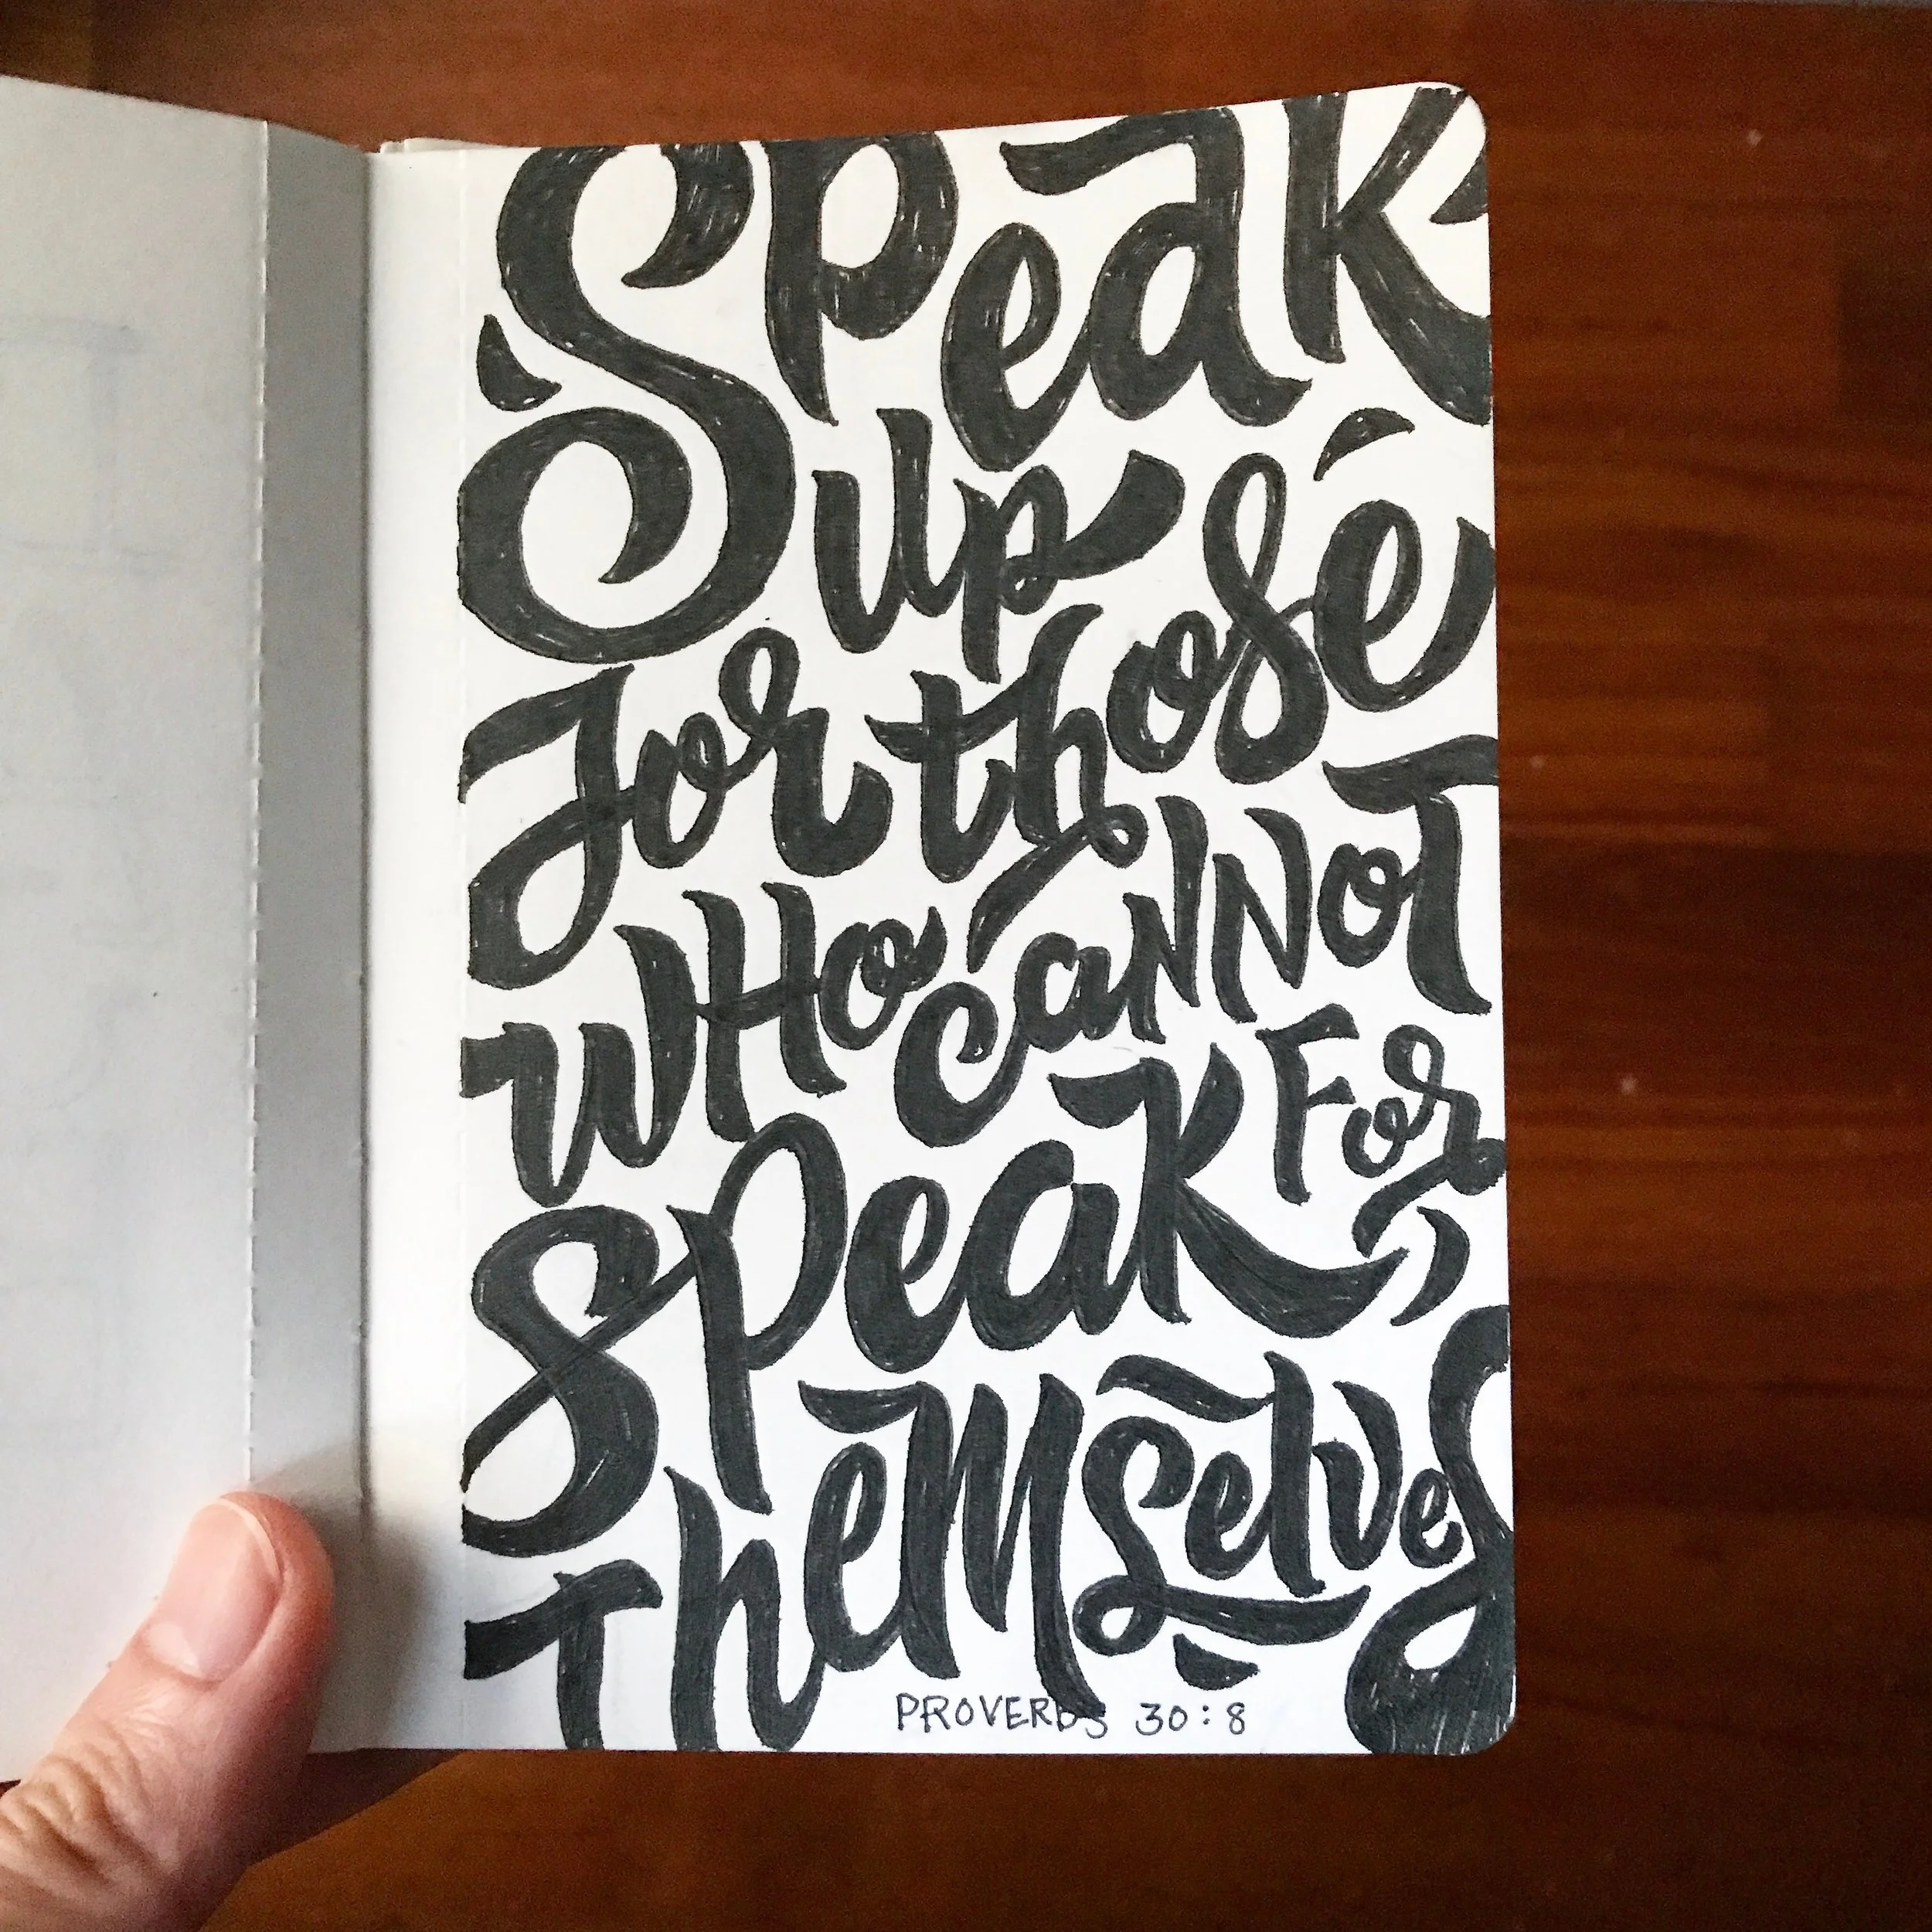 Speak
up
for those
WHo caNNoT
speak For
Themselves
PROVERBS 30:8